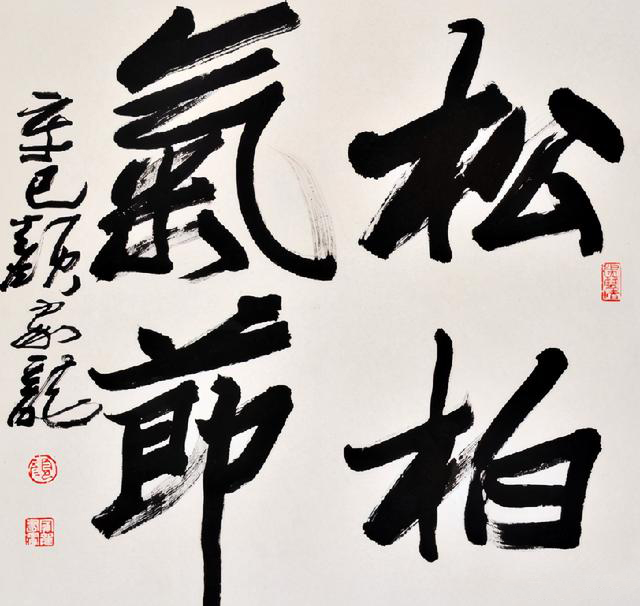 松柏
氣節
辛巳顾家龍